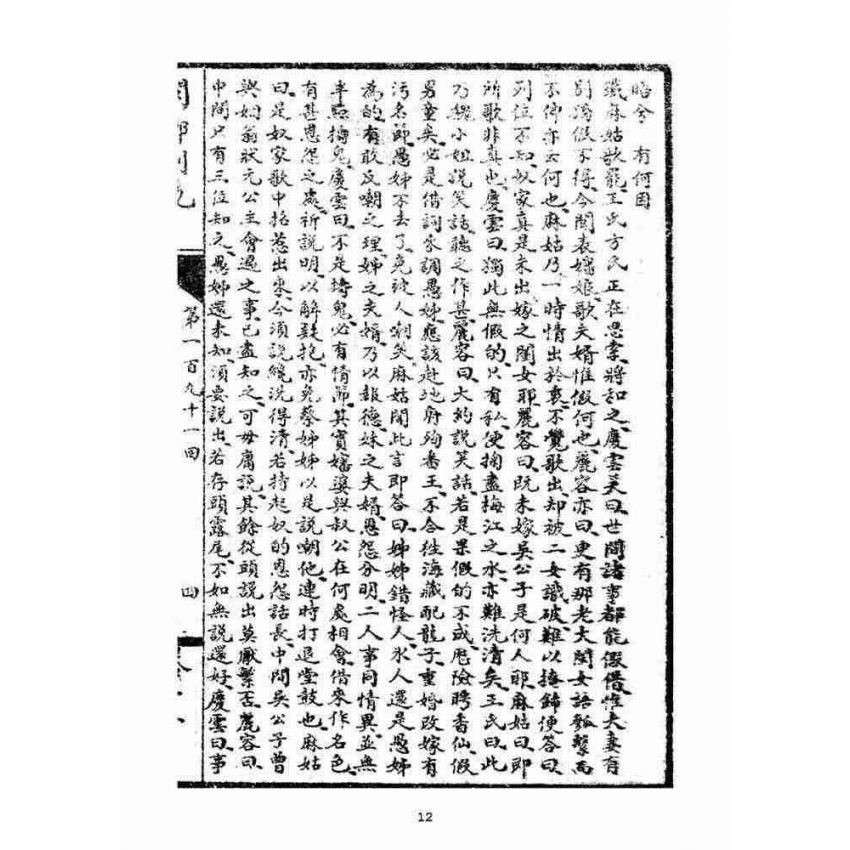 晗兮　有何因
織麻姑歌罷王氏方氏正在思索將知之慶雲美曰世間諸事都能假借惟夫妻有
別獨假不得今聞表嬸娘歌夫婿惟假何也麗容亦曰更有那老大閨女語瓠繫而
不仰亦云何也麻姑乃一時情出於衷不覺歌出却被二女識破難以掩歸便答曰
列位不知奴家真是未出嫁之閨女耶麗容曰既未嫁吳公子是何人耶麻姑曰即
所歌非真也慶雲曰獨此無假的只有私便掬盡梅江之水亦難洗清矣王氏曰此
乃魏小姐說笑話聽之作甚麗容曰大約說笑話若是果假的不或歷險聘香仙假
男童矣必是借詞水調愚姊應該赴地府殉番王不合往海藏配龍子重婚改嫁有
污名節愚姊不去了免被人嘲笑麻姑聞此言即答曰姊姊錯怪人氷人還是愚姊
為的有敢反嘲之理姊之夫婿乃以報德妹之夫婿恩怨分明二人事同情異並無
半點搗鬼慶雲曰不是搗鬼必有情節其實嬸婆與叔公在何處相會借來作名色
有甚恩怨之處祈說明以解疑抱亦免蔡姊姊以是說嘲他連時打退堂鼓也麻姑
曰是奴家歌中招惹出來今須說纔洗得清若持起奴的恩怨話長中間吳公子曾
與如翁狀元公主會過之事已盡知之可毋庸說其餘從頭說出莫厭繁否麗容曰
中間只有三位知之愚姊還未知須要說出若存頭露尾不如無說還好慶雲曰事
第一百九十一回
四